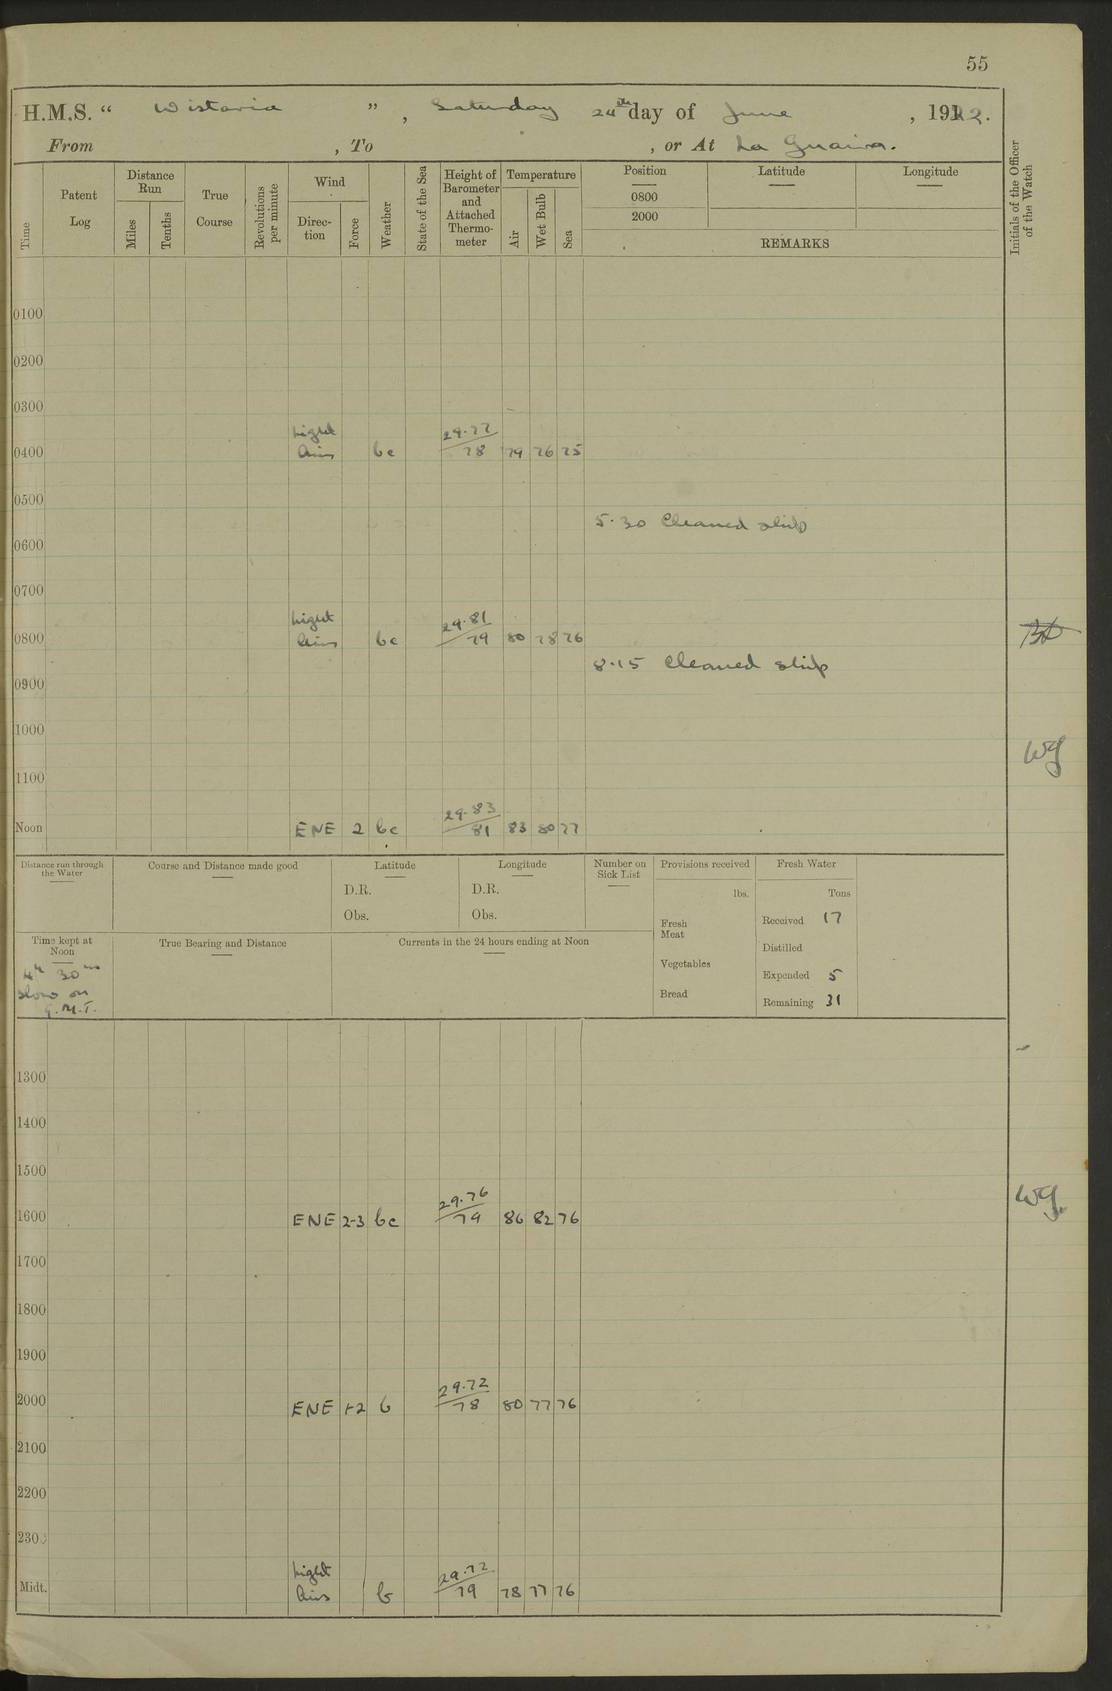 55
H.M.S. “ Wistaria ” , Saturday 24th day of June , 1922.
From , To , or At La Guaira.
Time
Patent Log
Distance Run
Miles
Tenths
True Course
Revolutions per minute
Wind
Direc-tion
Force
Weather
State of the Sea
Height of Barometer and Attached Thermo-meter
Temperature
Air
Wet Bulb
Sea
Position
0800
2000
Latitude
Longitude
REMARKS
Initials of the Officer of the Watch
0100
0200
0300
Light 29.77
0400 Airs bc 78 79 76 75
0500
5.30 Cleaned ship
0600
0700
Light 29.81
0800 Airs bc 79 80 78 76
8.15 Cleaned ship
0900
1000
WG
1100
29.83
Noon ENE 2 bc 81 83 80 77
Distance run through the Water
Course and Distance made good
Latitude
D.R.
Obs.
Longitude
D.R.
Obs.
Number on Sick List
Provisions received
lbs.
Fresh Meat
Vegetables
Bread
Fresh Water
Tons
Received 17
Distilled
Expended 5
Remaining 31
Time kept at Noon
4h 30m
slow on
G.M.T.
True Bearing and Distance
Currents in the 24 hours ending at Noon
1300
1400
1500
29.76
1600 ENE 2-3 bc 79 86 82 76
WG.
1700
1800
1900
29.72
2000 ENE 1-2 b 78 80 77 76
2100
2200
2300
Light 29.72
Midt. Airs b 79 78 77 76